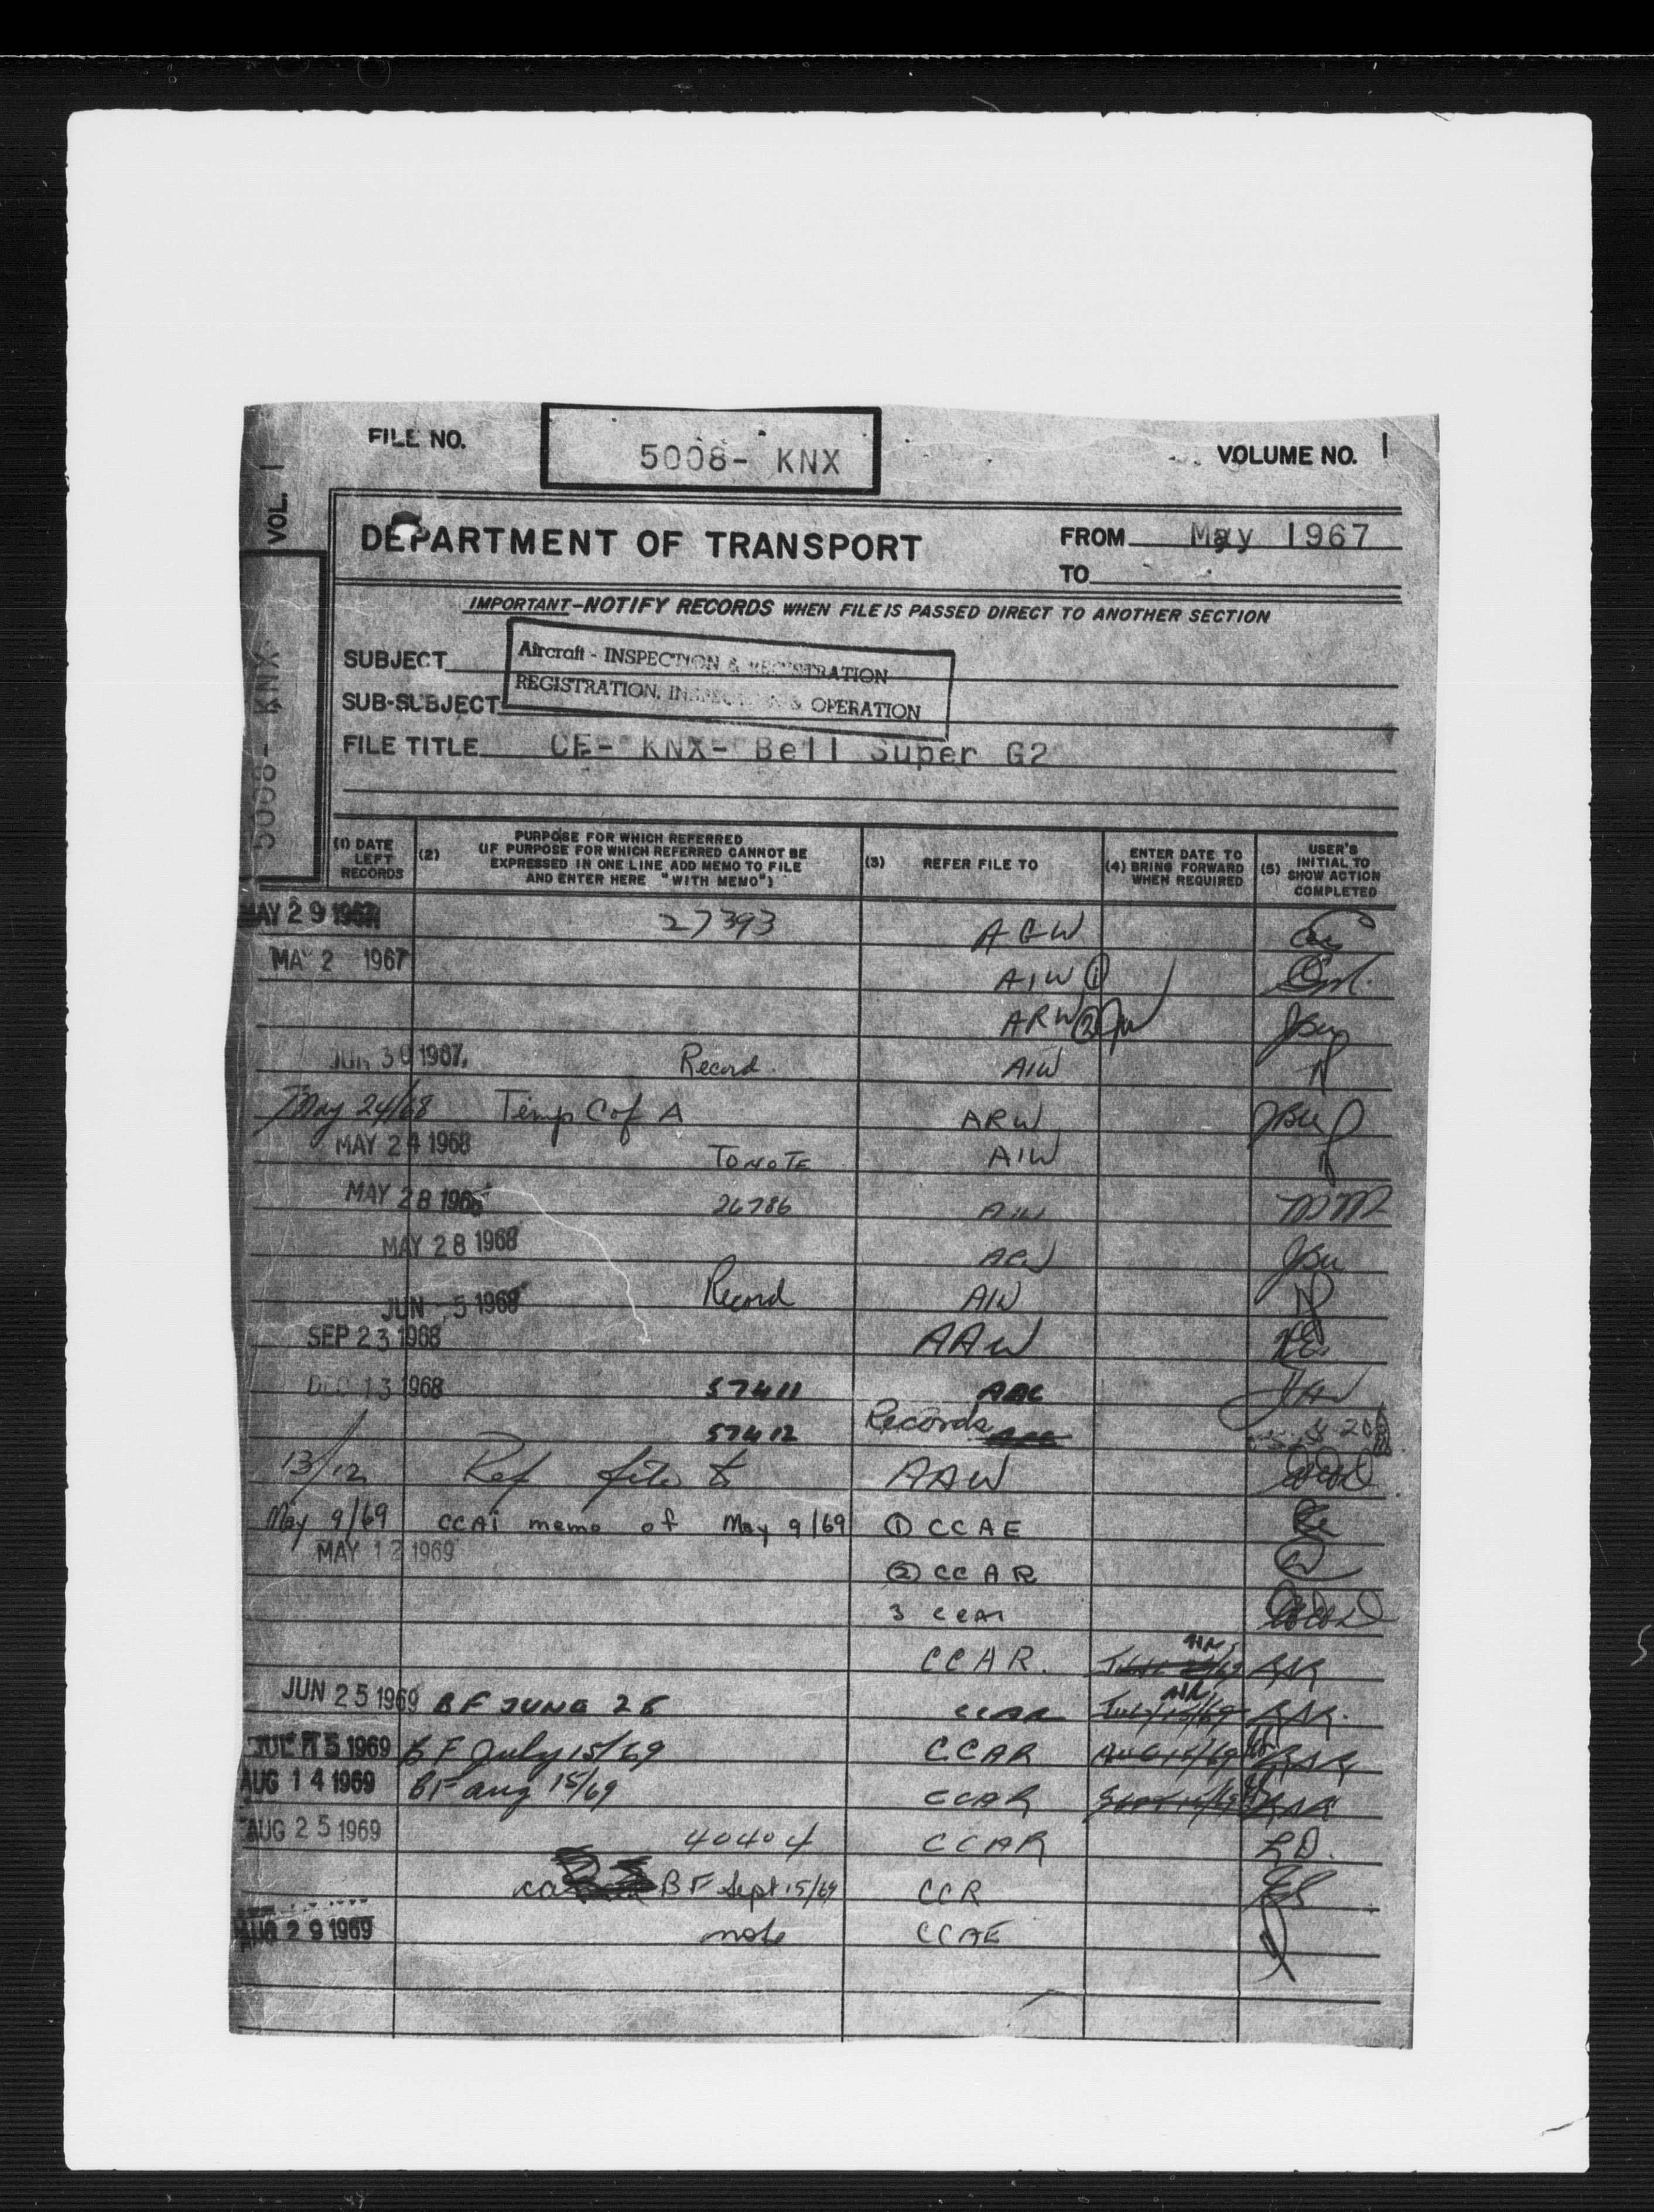 FILE NO. 5008- KNX VOLUME NO. 1
VOL. 1
5008- KNX
DEPARTMENT OF TRANSPORT
FROM May 1967
TO
IMPORTANT-NOTIFY RECORDS WHEN FILE IS PASSED DIRECT TO ANOTHER SECTION
SUBJECT Aircraft - INSPECTION & REGISTRATION
SUB-SUBJECT REGISTRATION, INSPECTION & OPERATION
FILE TITLE CF- KNX- Bell Super G2
(1) DATE LEFT RECORDS
(2) PURPOSE FOR WHICH REFERRED
(IF PURPOSE FOR WHICH REFERRED CANNOT BE
EXPRESSED IN ONE LINE ADD MEMO TO FILE
AND ENTER HERE "WITH MEMO")
(3) REFER FILE TO
(4) ENTER DATE TO BRING FORWARD WHEN REQUIRED
(5) USER'S INITIAL TO SHOW ACTION COMPLETED
MAY 29 1967 27393 AGW
MAY 2 1967 AIW ①
ARW ②
JUN 30 1967 Record AIW
May 24/68 Temp C of A ARW
MAY 24 1968 TO NOTE AIW
MAY 28 1968 26786 AIW MM
MAY 28 1968 ARW
JUN -5 1968 Record AIW
SEP 23 1968 AAW
DEC 13 1968 57411 AAC JAW
57412 Records
13/12 Ref file to AAW
May 9/69 CCAI memo of May 9/69 ① CCAE
MAY 12 1969
② CCAR
3 CCAI
CCAR. RAR
JUN 25 1969 BF JUNE 25 CCAR July 15/69 RAR.
JUL 15 1969 BF July 15/69 CCAR AUG 15/69 RAR
AUG 14 1969 BF Aug 15/69 CCAR Sept 15/69 RAR
AUG 25 1969 40404 CCAR LD.
BF Sept 15/69 CCR
AUG 29 1969 note CCAE